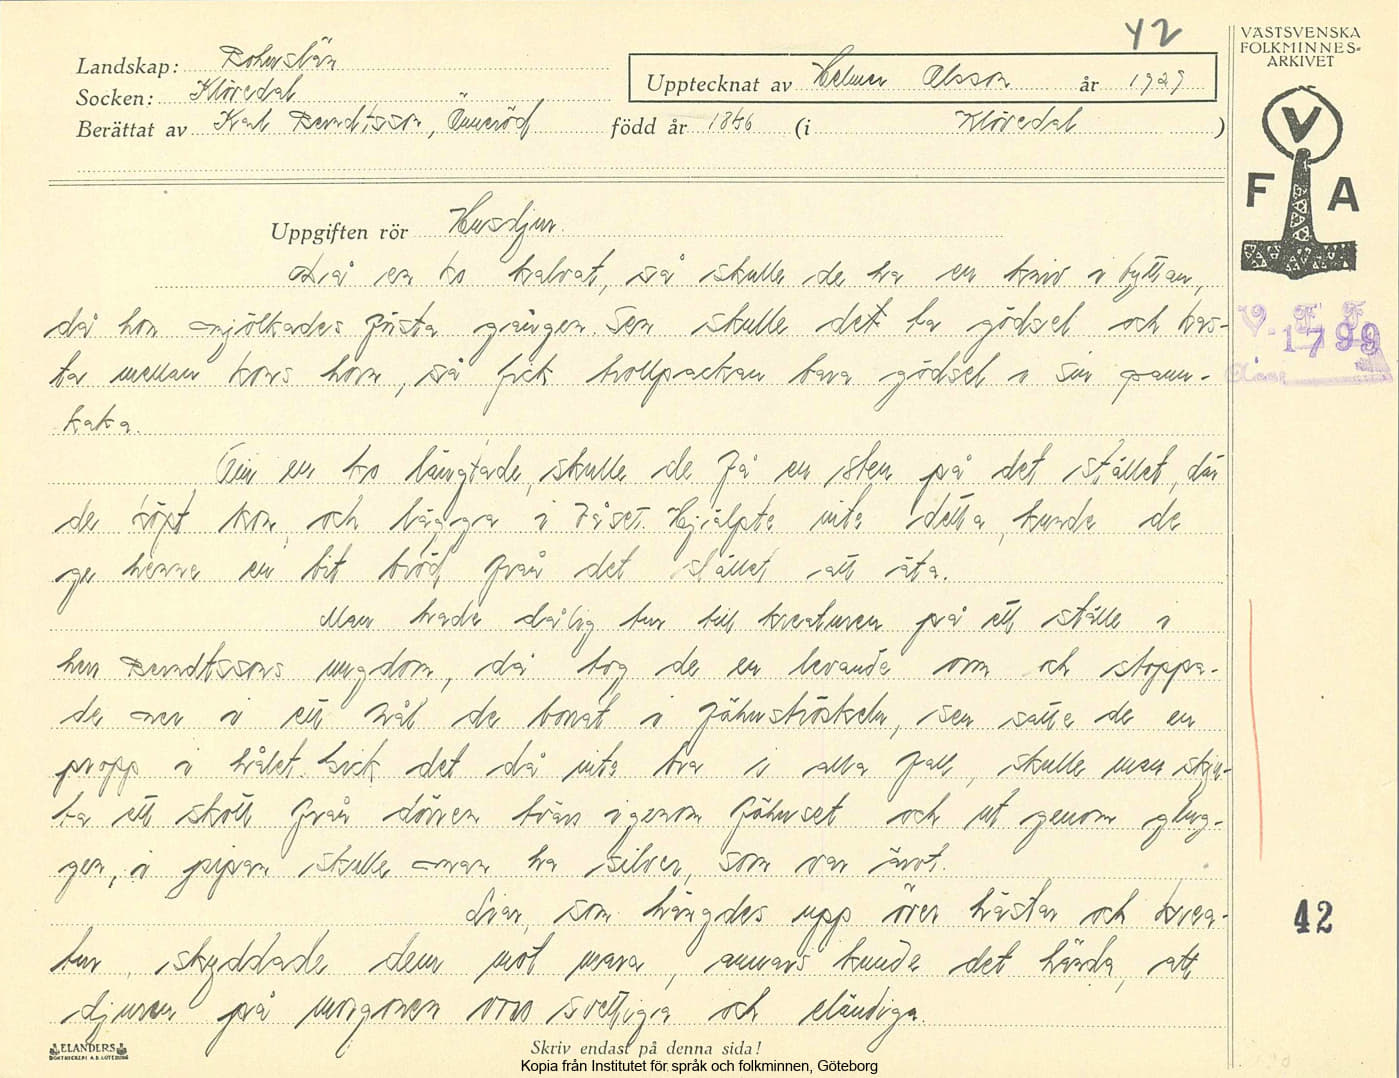 42
VÄSTSVENSKA
FOLKMINNES-
ARKIVET
Landskap: Bohuslän
Upptecknat av Helmer Olsson år 1929
Socken: Klövedal
Berättat av Karl Berndtsson, född år 1846 (i Klövedal)
V
F A
Uppgiften rör Husdjur.
Då en ko kalvat, så skulle de ha en kniv i byttan,
då hon mjölkades första gången. Sen skulle det ta gödsel och kas-
ta mellan kons horn, så fick trollpackan bara gödsel i sin pann-
kaka.
V. F. F.
1799
Om en ko längtade, skulle de få en sten på det stället, där
de köpt kon, och lägga i båset. Hjälpte inte detta, kunde de
ge henne en bit bröd från det stället att äta.
Man hade dålig tur till kreaturen på ett ställe i
herr Berndtssons ungdom, då tog de en levande orm och stoppa-
de ner i ett hål de borrat i fähuströskeln, sen satte de en
propp i hålet. Gick det då inte bra i alla fall, skulle man skju-
ta ett skott från dörren tvärs igenom fähuset och ut genom glug-
gen, i pipan skulle man ha silver, som var ärvt.
Liar, som hängdes upp över hästar och krea-
tur, skyddade dem mot mara, annars kunde det hända, att
djuren på morgonen voro svettiga och eländiga.
42
ELANDERS
BOKTRYCKERI A.B. GÖTEBORG
Skriv endast på denna sida!
Kopia från Institutet för språk och folkminnen, Göteborg